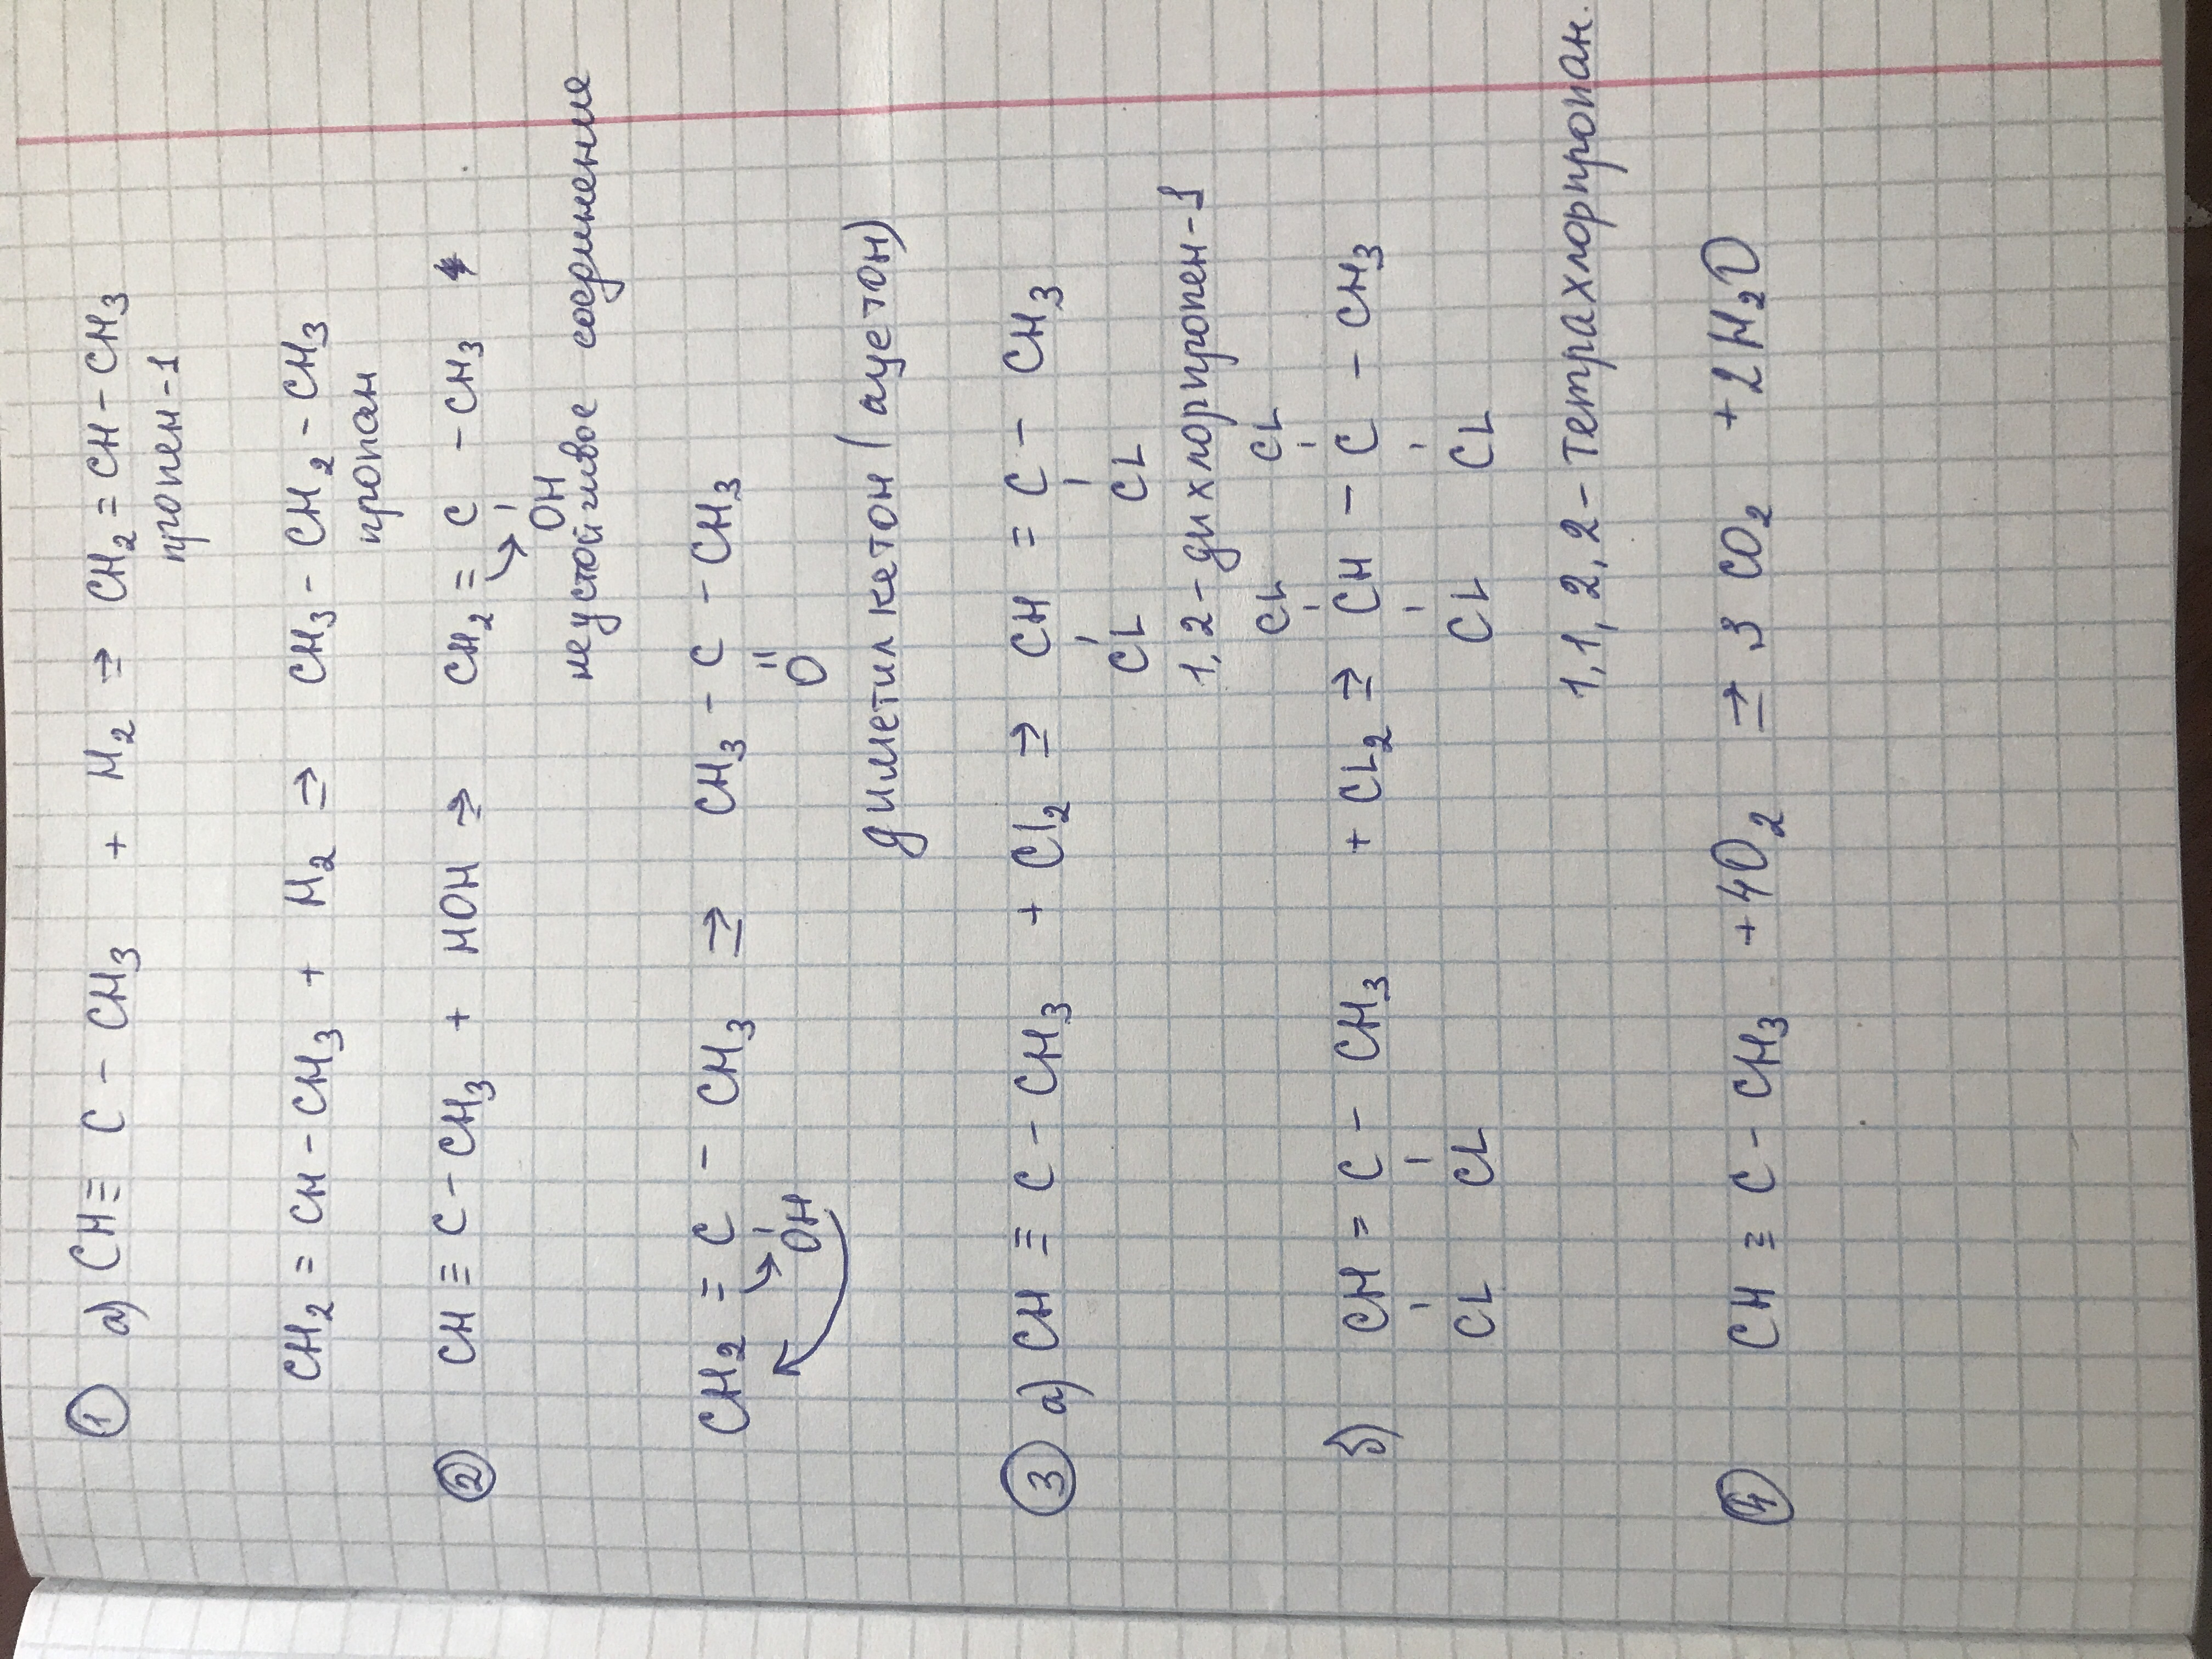 ① а) CH ≡ C - CH₃ + H₂ ⇒ CH₂ = CH - CH₃
пропен-1
CH₂ = CH - CH₃ + H₂ ⇒ CH₃ - CH₂ - CH₃
пропан
② CH ≡ C - CH₃ + HOH ⇒ CH₂ = C - CH₃
OH
неустойчивое соединение
CH₂ = C - CH₃ ⇒ CH₃ - C - CH₃
OH O
диметилкетон (ацетон)
③ а) CH ≡ C - CH₃ + Cl₂ ⇒ CH = C - CH₃
CL CL
1,2-дихлорпропен-1
CL CL
б) CH = C - CH₃ + CL₂ ⇒ CH - C - CH₃
CL CL CL CL
1,1,2,2-тетрахлорпропан.
④ CH ≡ C - CH₃ + 4O₂ ⇒ 3CO₂ + 2H₂O